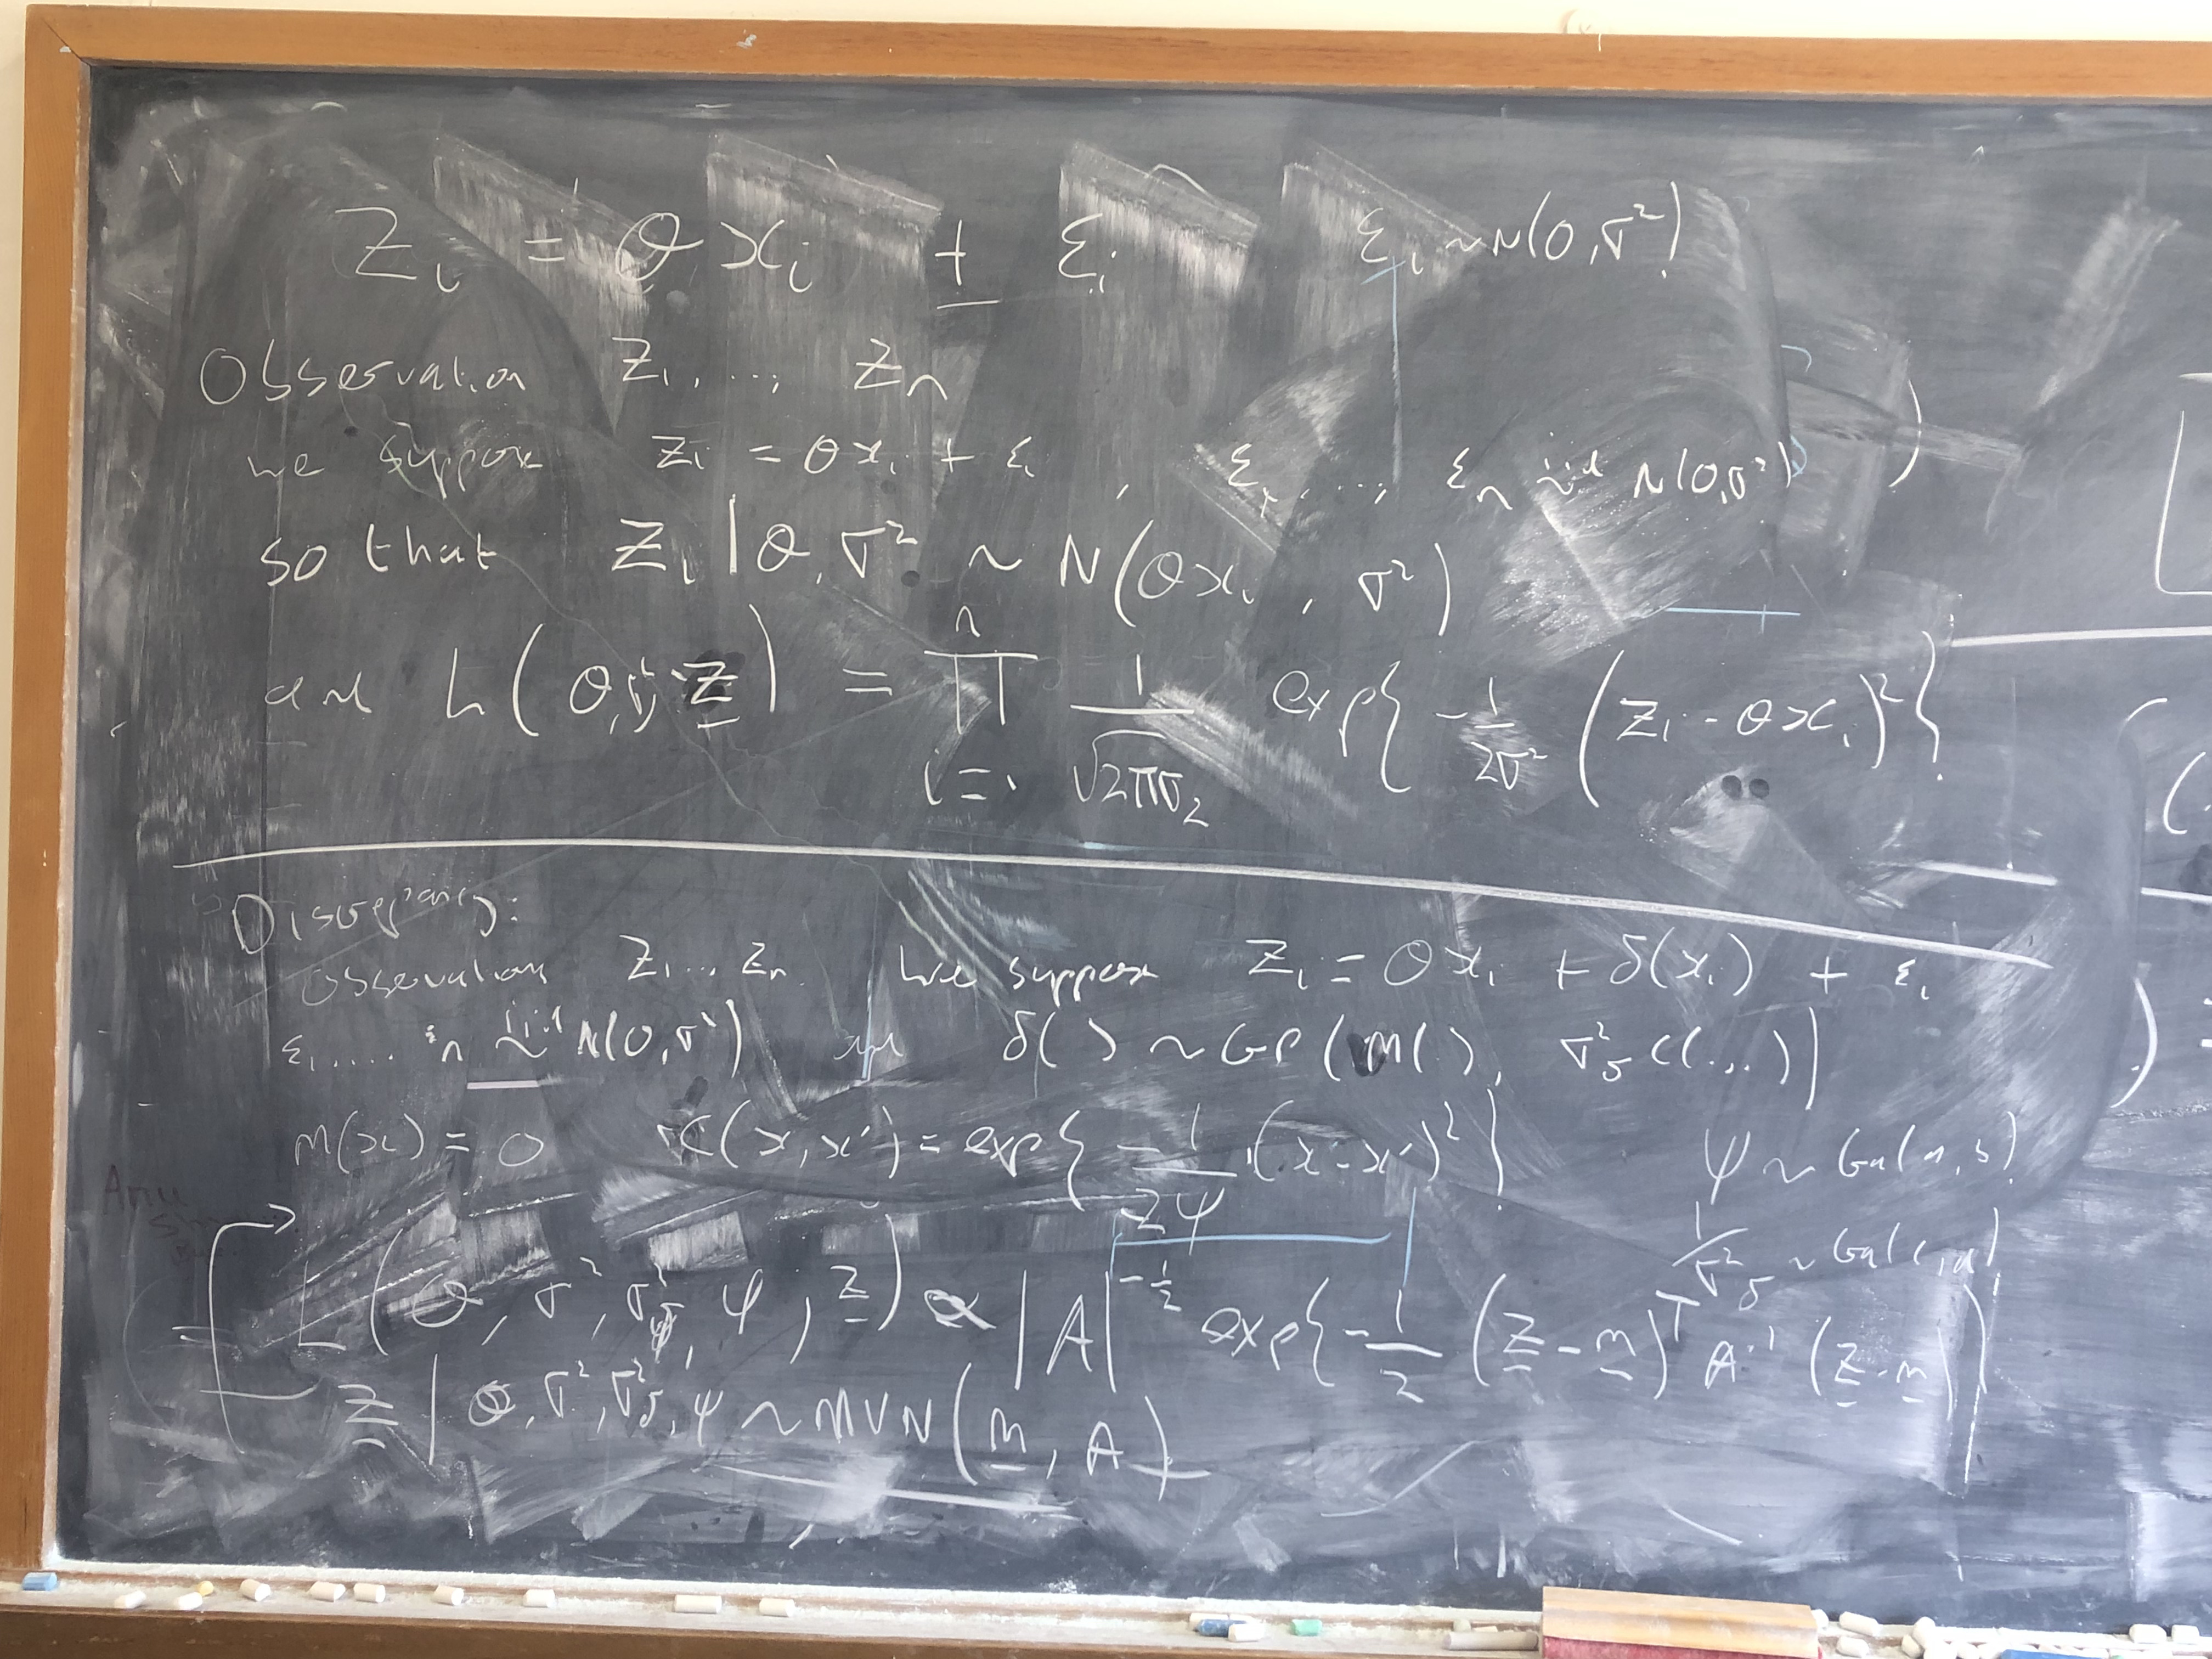 Zi = θxi + εi    εi ~ N(0,σ²)
Observation Z1, ..., Zn
we suppose Zi = θxi + εi , ε1, ..., εn iid N(0,σ²)
so that Zi | θ, σ² ~ N(θxi, σ²)
and L(θ,σ²; Z) = ∏ i=1 n 1/√2πσ2 exp{ -1/2σ² (Zi - θxi)² }
Discrepancy:
Observations Z1...Zn. We suppose Zi = θxi + δ(xi) + εi
ε1, .... εn iid ~ N(0,σ²) and δ() ~ GP(m(), σ²δ C(.,.))
m(x) = 0    C(x,x') = exp{ -1/2ψ (x-x')² }    ψ ~ Ga(a,b)
1/σ²δ ~ Ga(c,d)
L(θ, σ², σ²δ, ψ; Z) ∝ |A|^-½ exp{ -1/2 (Z-m)ᵀ A⁻¹ (Z-m) }
Z | θ, σ², σ²δ, ψ ~ MVN(m, A)